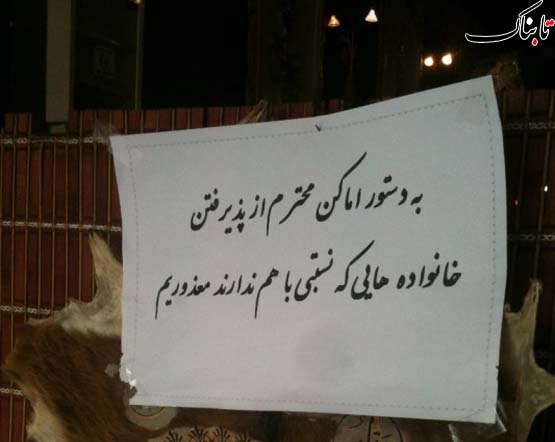 تابناک
به دستور اماکن محترم از پذیرفتن
خانواده هایی که نسبتی با هم ندارند معذوریم